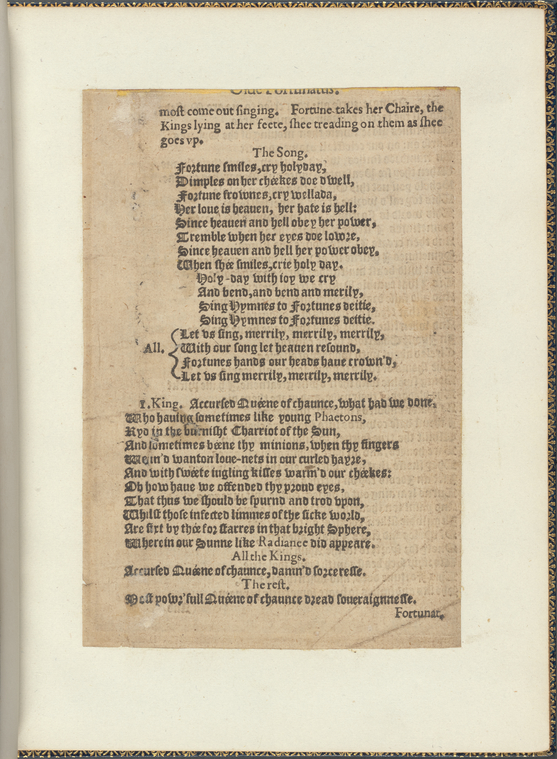 Olde Fortunatus.
most come out singing. Fortune takes her Chaire, the
Kings lying at her feete, shee treading on them as shee
goes vp.
The Song.
Fortune smiles, cry holyday,
Dimples on her chéekes doe dwell,
Fortune frownes, cry wellada,
Her loue is heauen, her hate is hell:
Since heauen and hell obey her power,
Tremble when her eyes doe lowre,
Since heauen and hell her power obey,
When shée smiles, crie holy day.
Holy-day with ioy we cry
And bend, and bend and merily,
Sing Hymnes to Fortunes deitie,
Sing Hymnes to Fortunes deitie.
Let vs sing, merrily, merrily, merrily,
All. With our song let heauen resound,
Fortunes hands our heads haue crown'd,
Let vs sing merrily, merrily, merrily.
1. King. Accursed Quéene of chaunce, what had we done,
Who hauing sometimes like young Phaetons,
Ryd in the burnisht Charriot of the Sun,
And sometimes béene thy minions, when thy fingers
Weau'd wanton loue-nets in our curled hayre,
And with swéete iugling kisses warm'd our chéekes:
Oh how haue we offended thy proud eyes,
That thus we should be spurnd and trod vpon,
Whilst those infected limmes of the sicke world,
Are fixt by thée for starres in that bright Sphere,
Wherein our Sunne like Radiance did appeare.
All the Kings.
Accursed Quéene of chaunce, damn'd sorceresse.
The rest.
Most powr'full Quéene of chaunce dread soueraignnesse.
Fortunat.